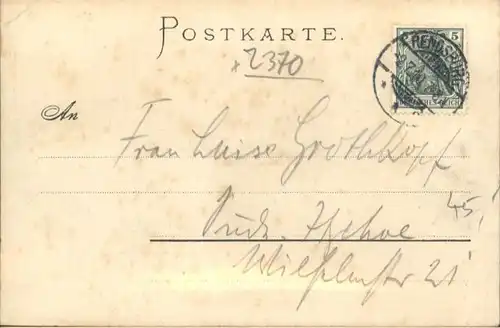 POSTKARTE.
5
RENDSBURG
x 2370
An
Frau Luise Grothkopf
45,
Itzehoe
Wilhelmstr 21